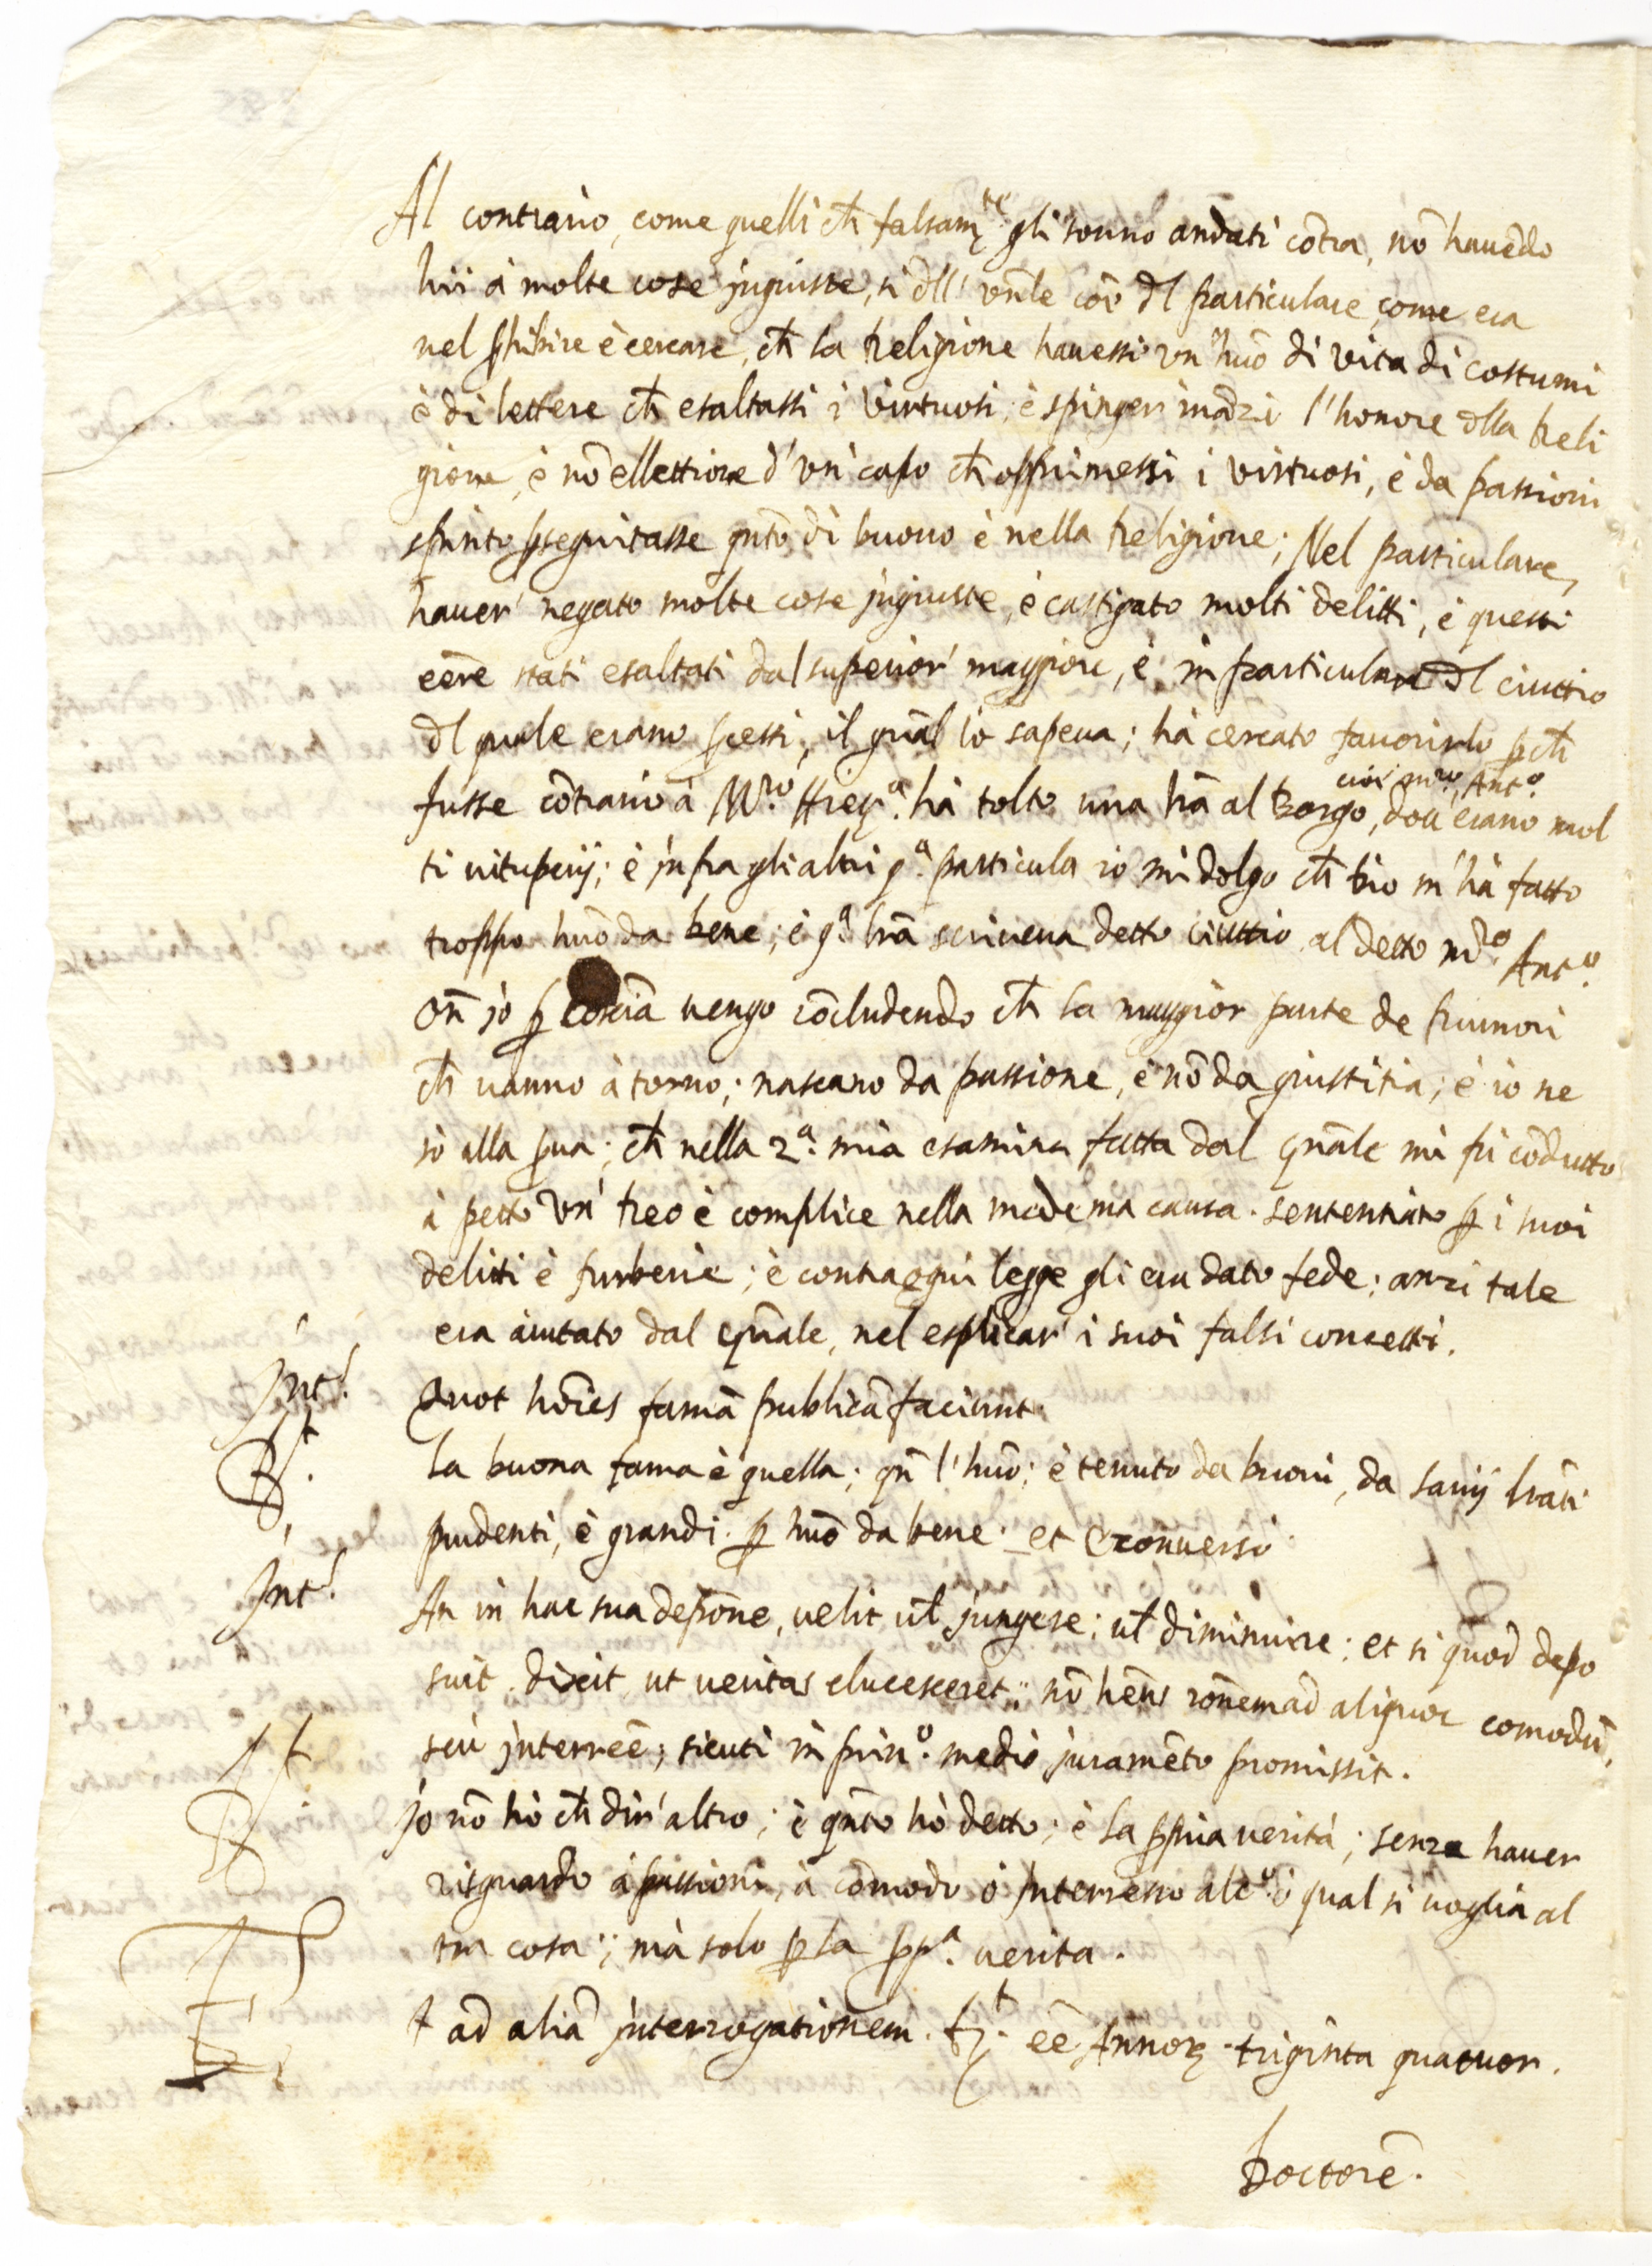 Al contrario, come quelli ch̃ falsamte gli sonno andati cõtra, nõ havẽdo
lui à molte cose jngiuste, si dll' vñle cõe dl particulare, come era
nel è cercare, ch̃ la Religione havessi vn' huõ di vita di costumi
è di lettere ch̃ esaltassi i virtuosi, è spinger inãzi l'honore dlla Reli
gione, è nõ ellettione d' vn' capo ch̃ opprimessi i virtuosi, è da passioni
spinto pseguitasse qñto di buono è nella Religione; Nel particulare,
haver' negato molte cose jngiuste, è castigato molti delitti, è questi
eẽre stati esaltati dal superior' maggiore, è in particulare dl ciuttio
dl quale erano pcessi, il qñal lo sapeva; hà cercato favorirlo p ch̃
fusse cõtrario à Mro. hà tolto una lrã al Borgo, dov' erano mol
cioè mro. Anto.
ti vituperij; è jnfra gli altri qa. particula io mi dolgo ch̃ Dio m' hà fatto
troppo huõ da bene; è qa lrã scriveva detto ciuttio al detto mro. Anto.
Oñ jo p cosciã vengo cõcludendo ch̃ la maggior parte de Rumori
ch̃ vanno à torno; nascano da passione, è nõ da giustitia; è io ne
sò alla pva; ch̃ nella 2a. mia esamina fatta dal qñale mi fù cõdutto
à petto vn' Reo è complice nella medema causa. sententiato p i suoi
delitti è furberie; è contra ogni legge gli era dato fede; anzi tale
era aiutato dal qñale, nel esplicar' i suoi falsi concetti.
Int.
Quot hoĩes famã publicã faciunt.
Rt.
La buona fama è quella; qñ l' huõ; è tenuto da buoni, da savij lrãti
prudenti, è grandi. p huõ da bene. et econversi
Int.
An in hac sua depõne, velit vl̃ jungere; vl̃ diminuire; et si quod depo
suit. dixit ut veritas elucesceret; nõ hẽns rõnem ad aliquoc comodũ,
seù jnterreẽ; sicuti in prino. medio juramẽto promissit.
Rt.
Jo nõ hò ch̃ dir' altro; è qñto hò detto; è la ppria verità; senza haver
risguardo à passioni, à cõmodo ò jnterresso alco. ò qual si voglia al
tra cosa; mà solo p la ppa. verita.
+ ad aliã jnterrogationem. Rt. eẽ Annoꝝ. triginta quatuor.
Doctorẽ.